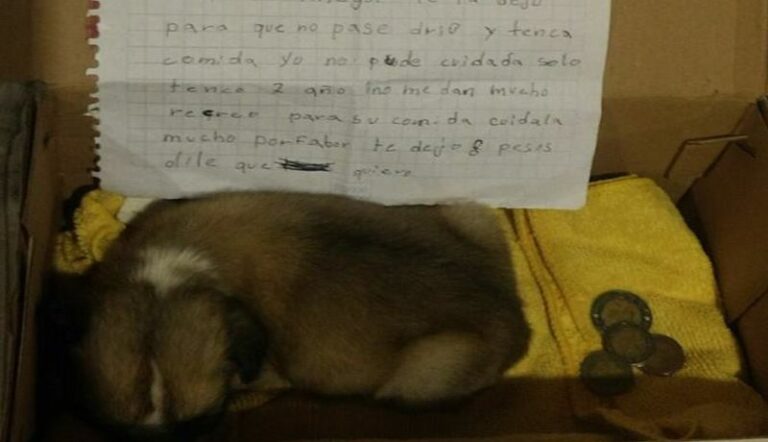 te la dejo
para que no pase drio y tenca
comida yo no pude cuidada solo
tenco 2 año no me dan mucho
recreo para su comida cuidala
mucho porfaber te dejo 8 pesos
dile que quiero